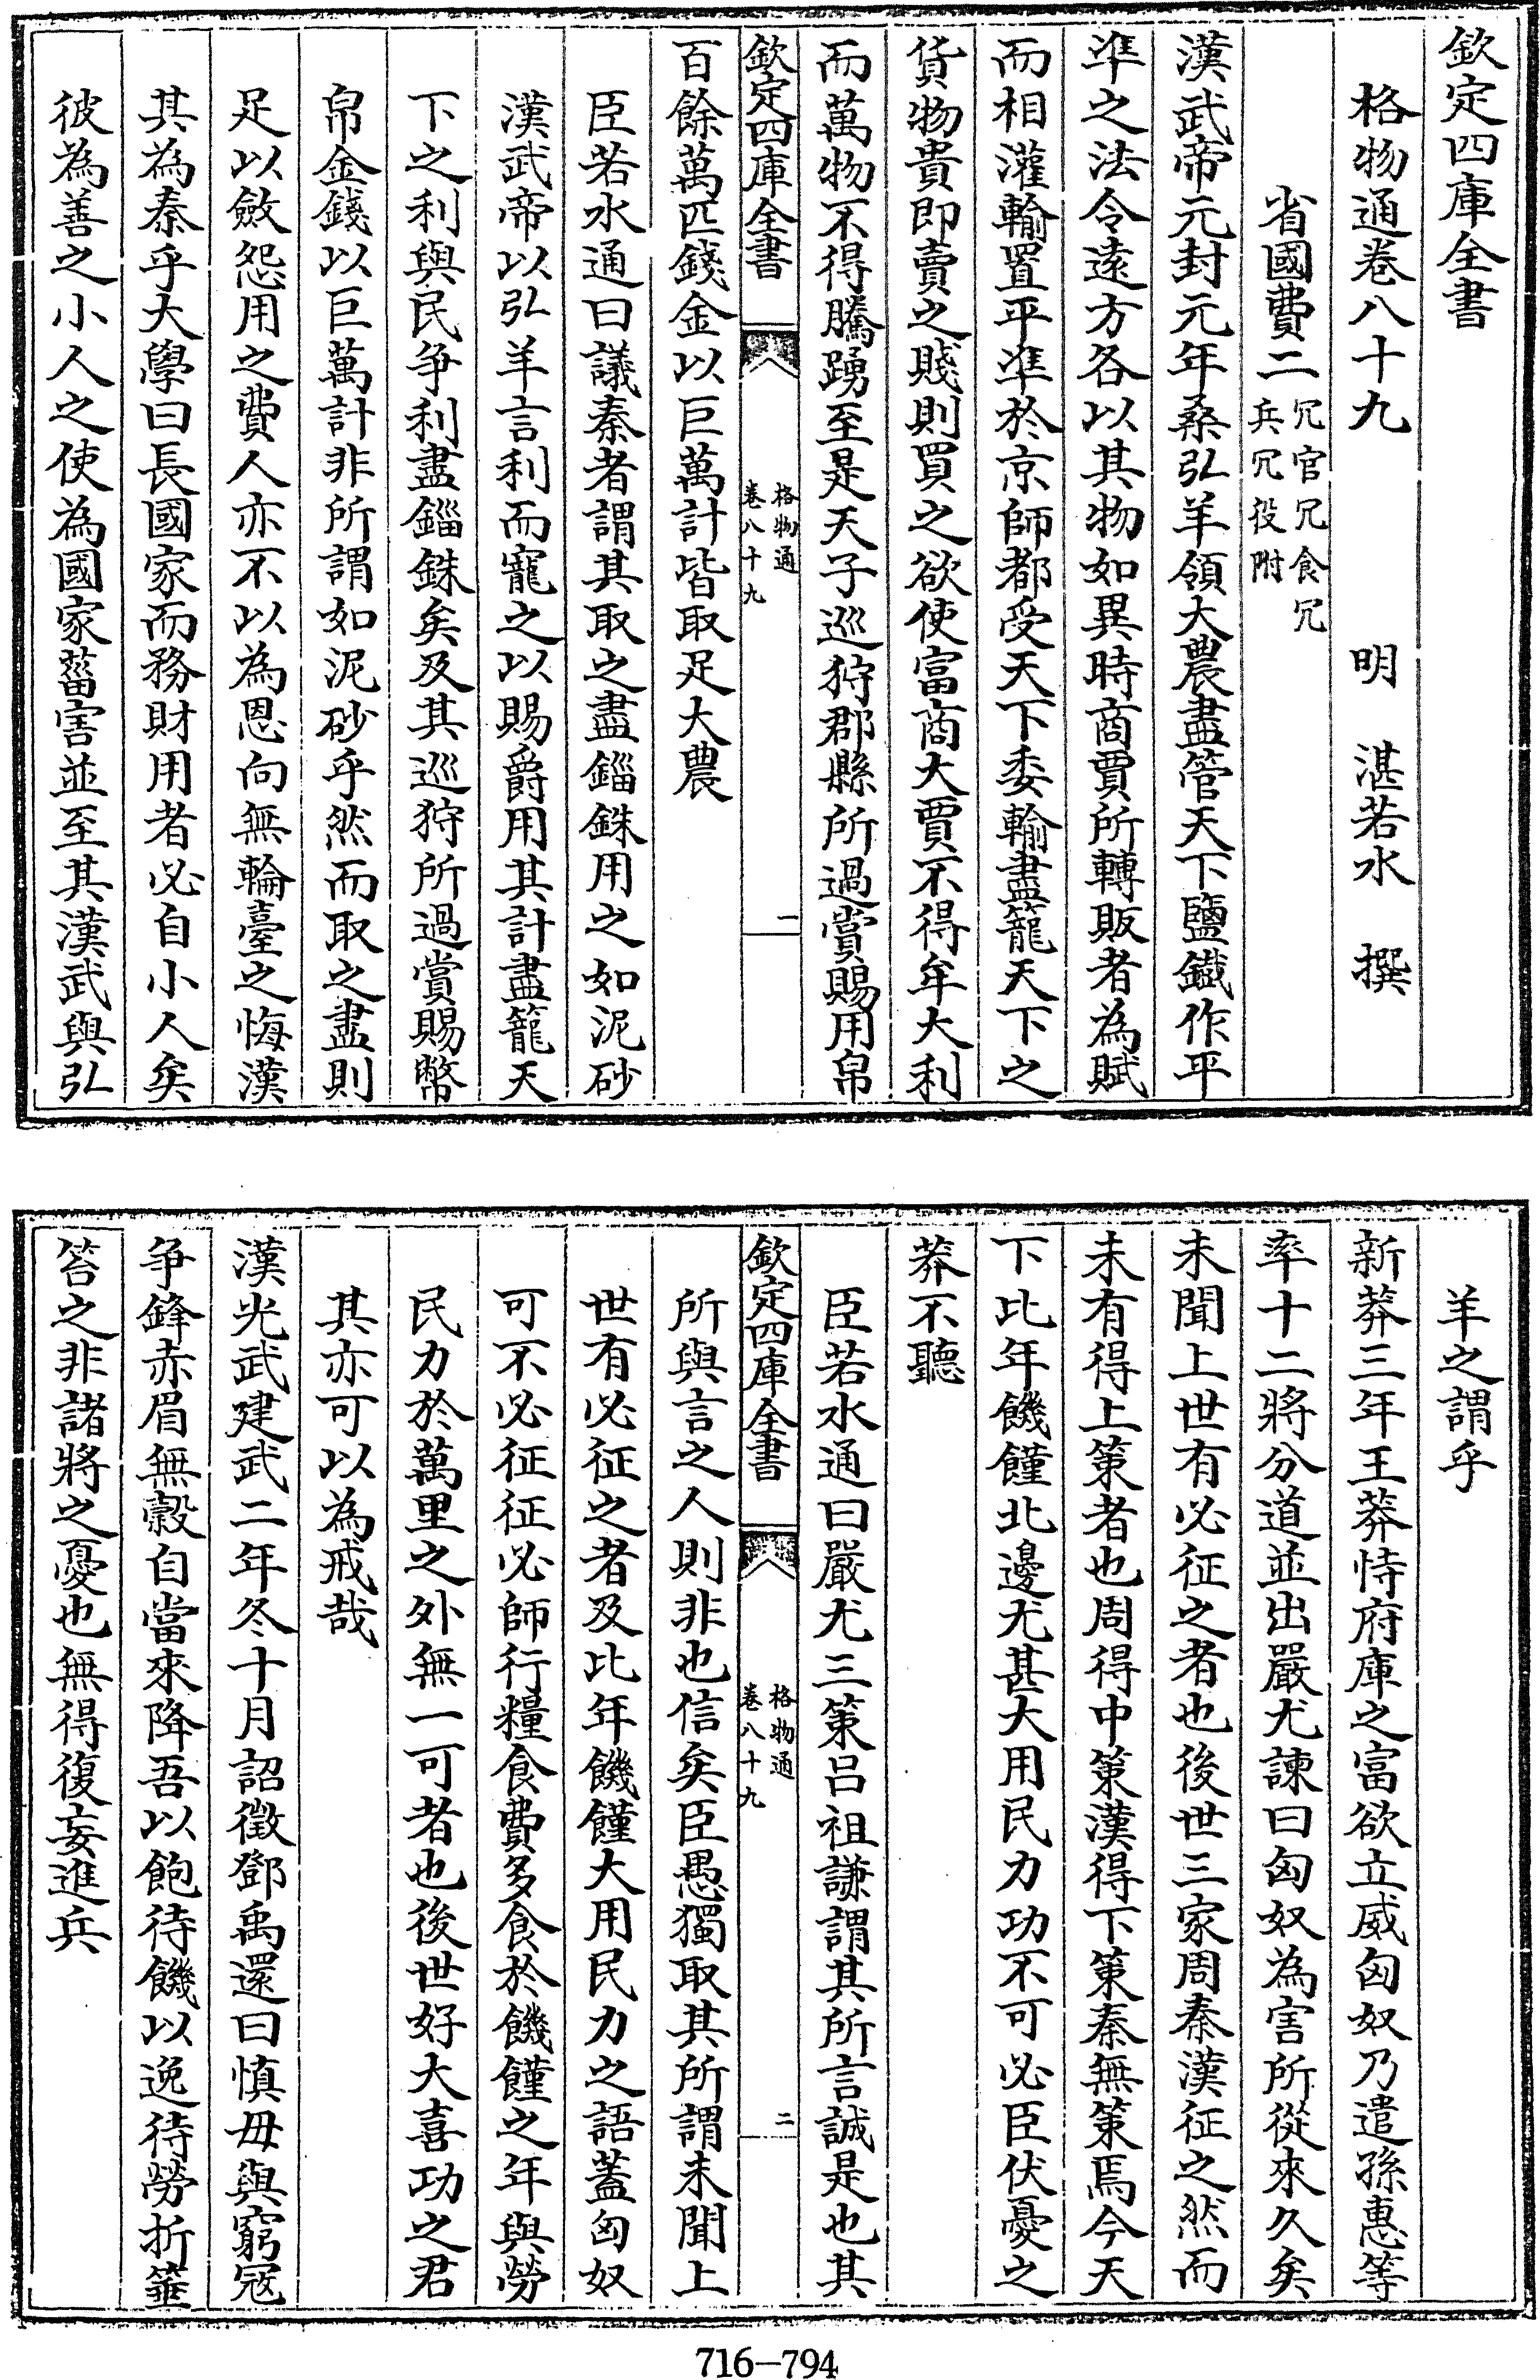 欽定四庫全書
格物通卷八十九　明　湛若水　撰
省國費二冗官冗食冗兵冗役附
漢武帝元封元年桑弘羊領大農盡管天下鹽鐵作平
準之法令遠方各以其物如異時商賈所轉販者為賦
而相灌輸置平準於京師都受天下委輸盡籠天下之
貨物貴即賣之賤則買之欲使富商大賈不得牟大利
而萬物不得騰踴至是天子巡狩郡縣所過賞賜用帛
欽定四庫全書　格物通卷八十九　一
百餘萬匹錢金以巨萬計皆取足大農
臣若水通曰議秦者謂其取之盡錙銖用之如泥砂
漢武帝以弘羊言利而寵之以賜爵用其計盡籠天
下之利與民爭利盡錙銖矣及其巡狩所過賞賜幣
帛金錢以巨萬計非所謂如泥砂乎然而取之盡則
足以斂怨用之費人亦不以為恩向無輪臺之悔漢
其為秦乎大學曰長國家而務財用者必自小人矣
彼為善之小人之使為國家菑害並至其漢武與弘
羊之謂乎
新莽三年王莽恃府庫之富欲立威匈奴乃遣孫惠等
率十二將分道並出嚴尤諫曰匈奴為害所從來久矣
未聞上世有必征之者也後世三家周秦漢征之然而
未有得上策者也周得中策漢得下策秦無策焉今天
下比年饑饉北邊尤甚大用民力功不可必臣伏憂之
莽不聽
臣若水通曰嚴尤三策呂祖謙謂其所言誠是也其
欽定四庫全書　格物通卷八十九　二
所與言之人則非也信矣臣愚獨取其所謂未聞上
世有必征之者及比年饑饉大用民力之語蓋匈奴
可不必征征必師行糧食費多食於饑饉之年與勞
民力於萬里之外無一可者也後世好大喜功之君
其亦可以為戒哉
漢光武建武二年冬十月詔徵鄧禹還曰慎毋與窮寇
爭鋒赤眉無穀自當來降吾以飽待饑以逸待勞折箠
笞之非諸將之憂也無得復妄進兵
716-794